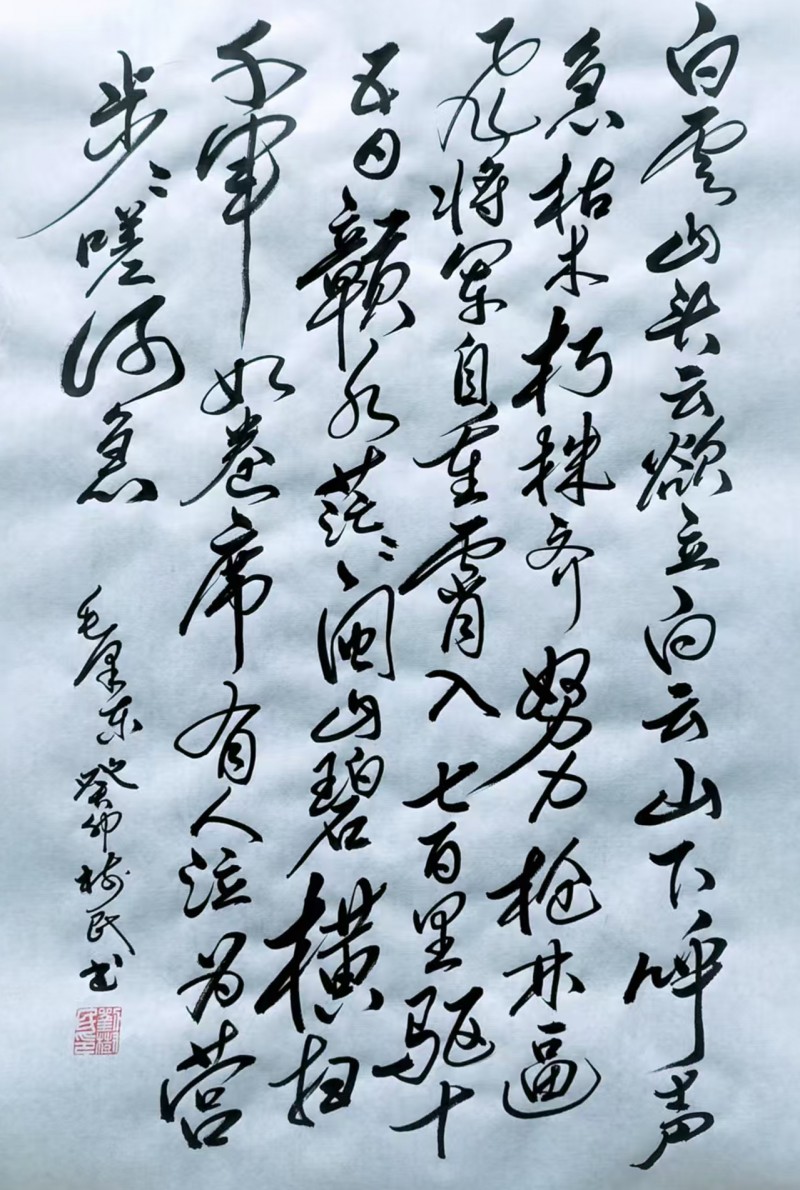 白雲山头云欲立白云山下呼声
急枯木朽株齐努力枪林逼
飞将军自重霄入七百里驱十
五日赣水茫茫闽山碧横扫
千军如卷席有人泣为营
步步嗟何急
毛泽东词癸卯树民书